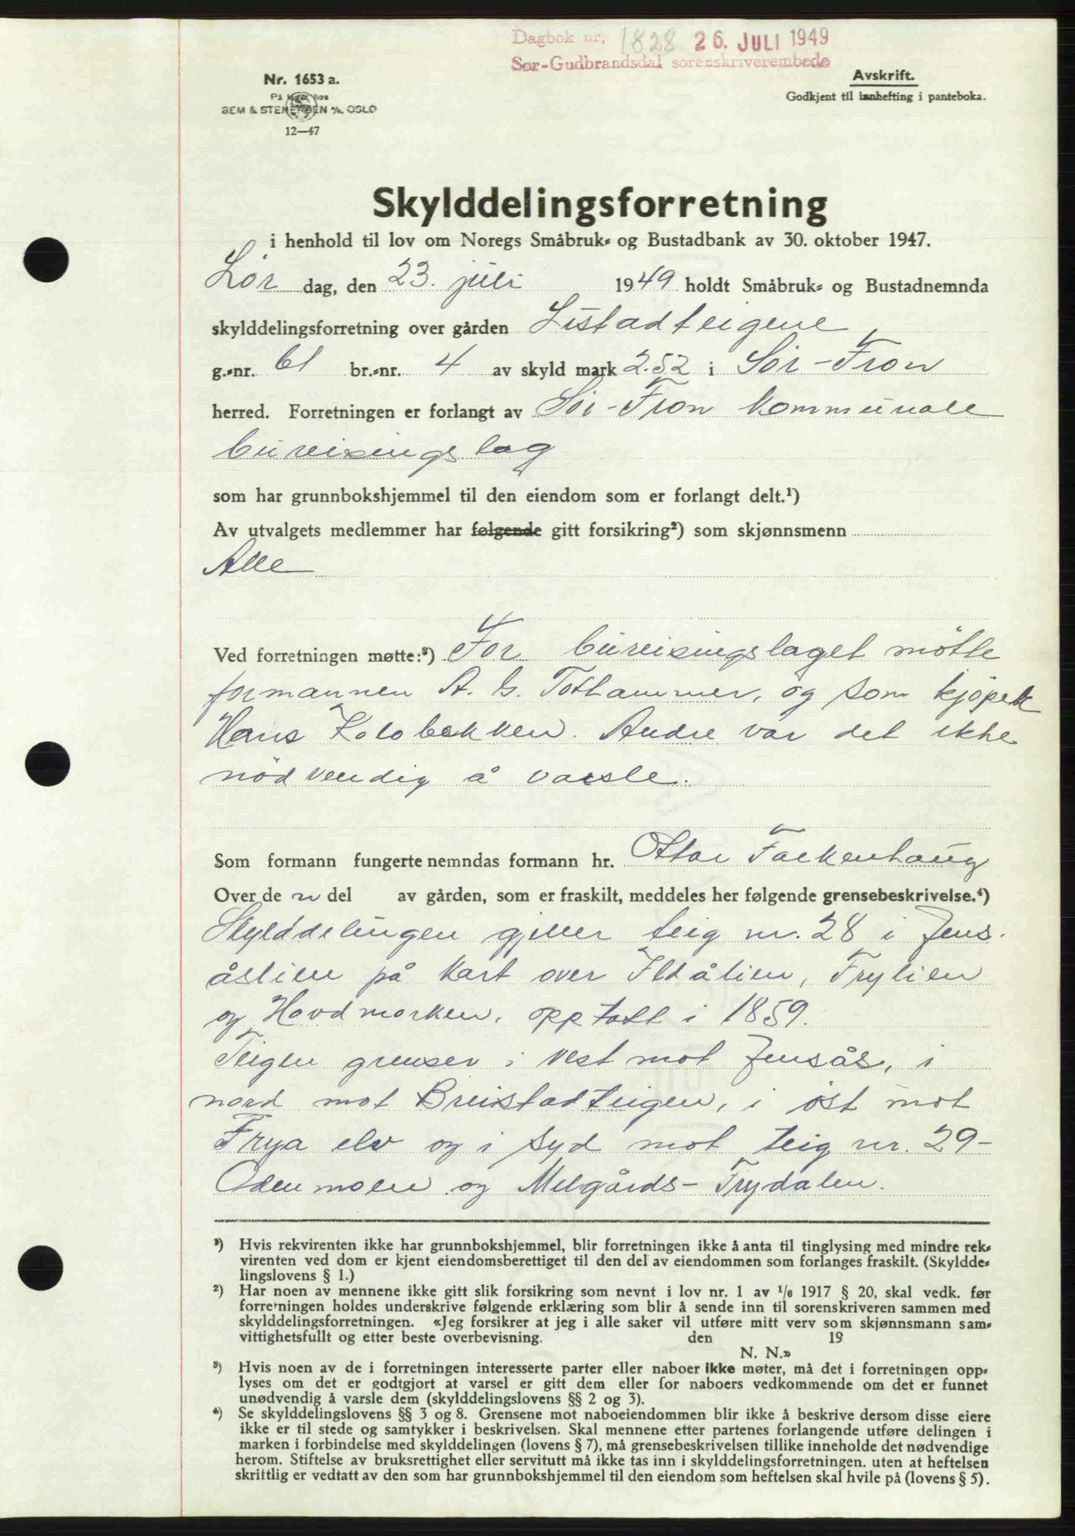 Dagbok nr. 1828 26. JULI 1949
Sør-Gudbrandsdal sorenskriverembede
Nr. 1653 a.
På lager hos
SEM & STENERSEN A/S, OSLO
12—47
Avskrift.
Godkjent til innhefting i panteboka.
Skylddelingsforretning
i henhold til lov om Noregs Småbruk- og Bustadbank av 30. oktober 1947.
Lør dag, den 23. juli 1949 holdt Småbruk- og Bustadnemnda
skylddelingsforretning over gården Listadteigene,
g.-nr. 61 br.-nr. 4 av skyld mark 2.52 i Sør-Fron
herred. Forretningen er forlangt av Sør-Fron kommunale
bureisingslag
som har grunnbokshjemmel til den eiendom som er forlangt delt.¹)
Av utvalgets medlemmer har følgende gitt forsikring²) som skjønnsmenn
Alle
Ved forretningen møtte:³) For bureisingslaget møtte
formannen A. G. Tofthammer, og som kjøper
Hans Kolobekken. Andre var det ikke
nødvendig å varsle.
Som formann fungerte nemndas formann hr. Ottar Falkenhaug
Over de n del av gården, som er fraskilt, meddeles her følgende grensebeskrivelse.⁴)
Skylddelingen gjeller teig nr. 28 i Jens-
åslien på kart over Ildålien, Frylien
og Hovdmorken, opptatt i 1859.
Teigen grenser i vest mot Jensås, i
nord mot Breistadteigen, i øst mot
Frya elv og i syd mot teig nr. 29-
Odenmoen og Melgårds-Frydalen.
¹) Hvis rekvirenten ikke har grunnbokshjemmel, blir forretningen ikke å anta til tinglysing med mindre rek-
virenten ved dom er kjent eiendomsberettiget til den del av eiendommen som forlanges fraskilt. (Skyldde-
lingslovens § 1.)
²) Har noen av mennene ikke gitt slik forsikring som nevnt i lov nr. 1 av ¹/₆ 1917 § 20, skal vedk. før
forretningen holdes underskrive følgende erklæring som blir å sende inn til sorenskriveren sammen med
skylddelingsforretningen. «Jeg forsikrer at jeg i alle saker vil utføre mitt verv som skjønnsmann sam-
vittighetsfullt og etter beste overbevisning. den 19
N. N.»
³) Hvis noen av de i forretningen interesserte parter eller naboer ikke møter, må det i forretningen opp-
lyses om det er godtgjort at varsel er gitt dem eller for naboers vedkommende om det er funnet
unødvendig å varsle dem (skylddelingslovens §§ 2 og 3).
⁴) Se skylddelingslovens §§ 3 og 8. Grensene mot naboeiendommen blir ikke å beskrive dersom disse eiere
ikke er til stede og samtykker i beskrivelsen. Skal mennene etter partenes forlangende utføre delingen i
marken i forbindelse med skylddelingen (lovens § 7), må grensebeskrivelsen tillike inneholde det nødvendige
herom. Stiftelse av bruksrettighet eller servitutt må ikke tas inn i skylddelingsforretningen. uten at heftelsen
skriftlig er vedtatt av den som har grunnbokshjemmel til den eiendom som heftelsen skal hvile på (lovens § 5).